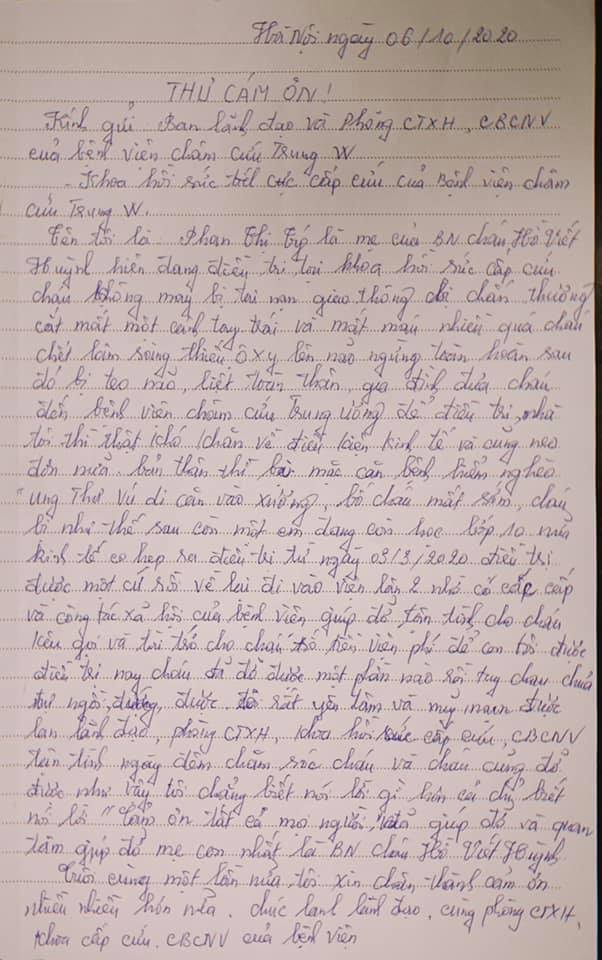 Hà Nội ngày 06/10/2020
THƯ CÁM ƠN!
Kính gửi Ban lãnh đạo và Phòng CTXH, CBCNV
của bệnh viện châm cứu Trung W
- Khoa hồi sức tích cực cấp cứu của Bệnh viện châm
cứu Trung W.
Tên tôi là Phan Thị là mẹ của BN cháu Hồ Viết
Huỳnh hiện đang điều trị tại khoa hồi sức cấp cứu
cháu không may bị tai nạn giao thông bị chấn thương
cắt mất một cánh tay trái và mất máu nhiều quá cháu
chết lâm sàng thiếu ôxy lên não ngừng tuần hoàn sau
đó bị teo não, liệt toàn thân, gia đình đưa cháu
đến bệnh viện châm cứu Trung ương để điều trị, nhà
tôi thì thật khó khăn về điều kiện kinh tế và cũng neo
đơn nữa. bản thân thì mắc căn bệnh hiểm nghèo
"ung thư vú di căn vào xương, bố cháu mất sớm, cháu
bị như thế sau còn một em đang còn học lớp 10 nữa
kinh tế eo hẹp ra điều trị từ ngày 03/3/2020 điều trị
được một cứ rồi về lại đi vào viện lần 2 nhờ có cấp
và công tác xã hội của bệnh viện giúp đỡ, tận tình cho cháu
kêu gọi và tài trợ cho cháu số tiền viện phí để con tôi được
điều trị nay cháu đã đỡ được một phần nào rồi tuy cháu chưa
ngồi, được. tôi rất yên tâm và may mắn được
ban lãnh đạo, phòng CTXH, khoa hồi sức cấp cứu, CBCNV
tận tình ngày đêm chăm sóc cháu và cháu cũng đỡ
được như vậy tôi chẳng biết nói lời gì hơn cả chỉ biết
nói lời "Cảm ơn tất cả mọi người, giúp đỡ và quan
tâm giúp đỡ mẹ con nhất là BN cháu Hồ Viết Huỳnh
Cuối cùng một lần nữa tôi xin chân thành cảm ơn
nhiều nhiều hơn nữa. chúc ban lãnh đạo, cùng phòng CTXH,
khoa cấp cứu. CBCNV của bệnh viện